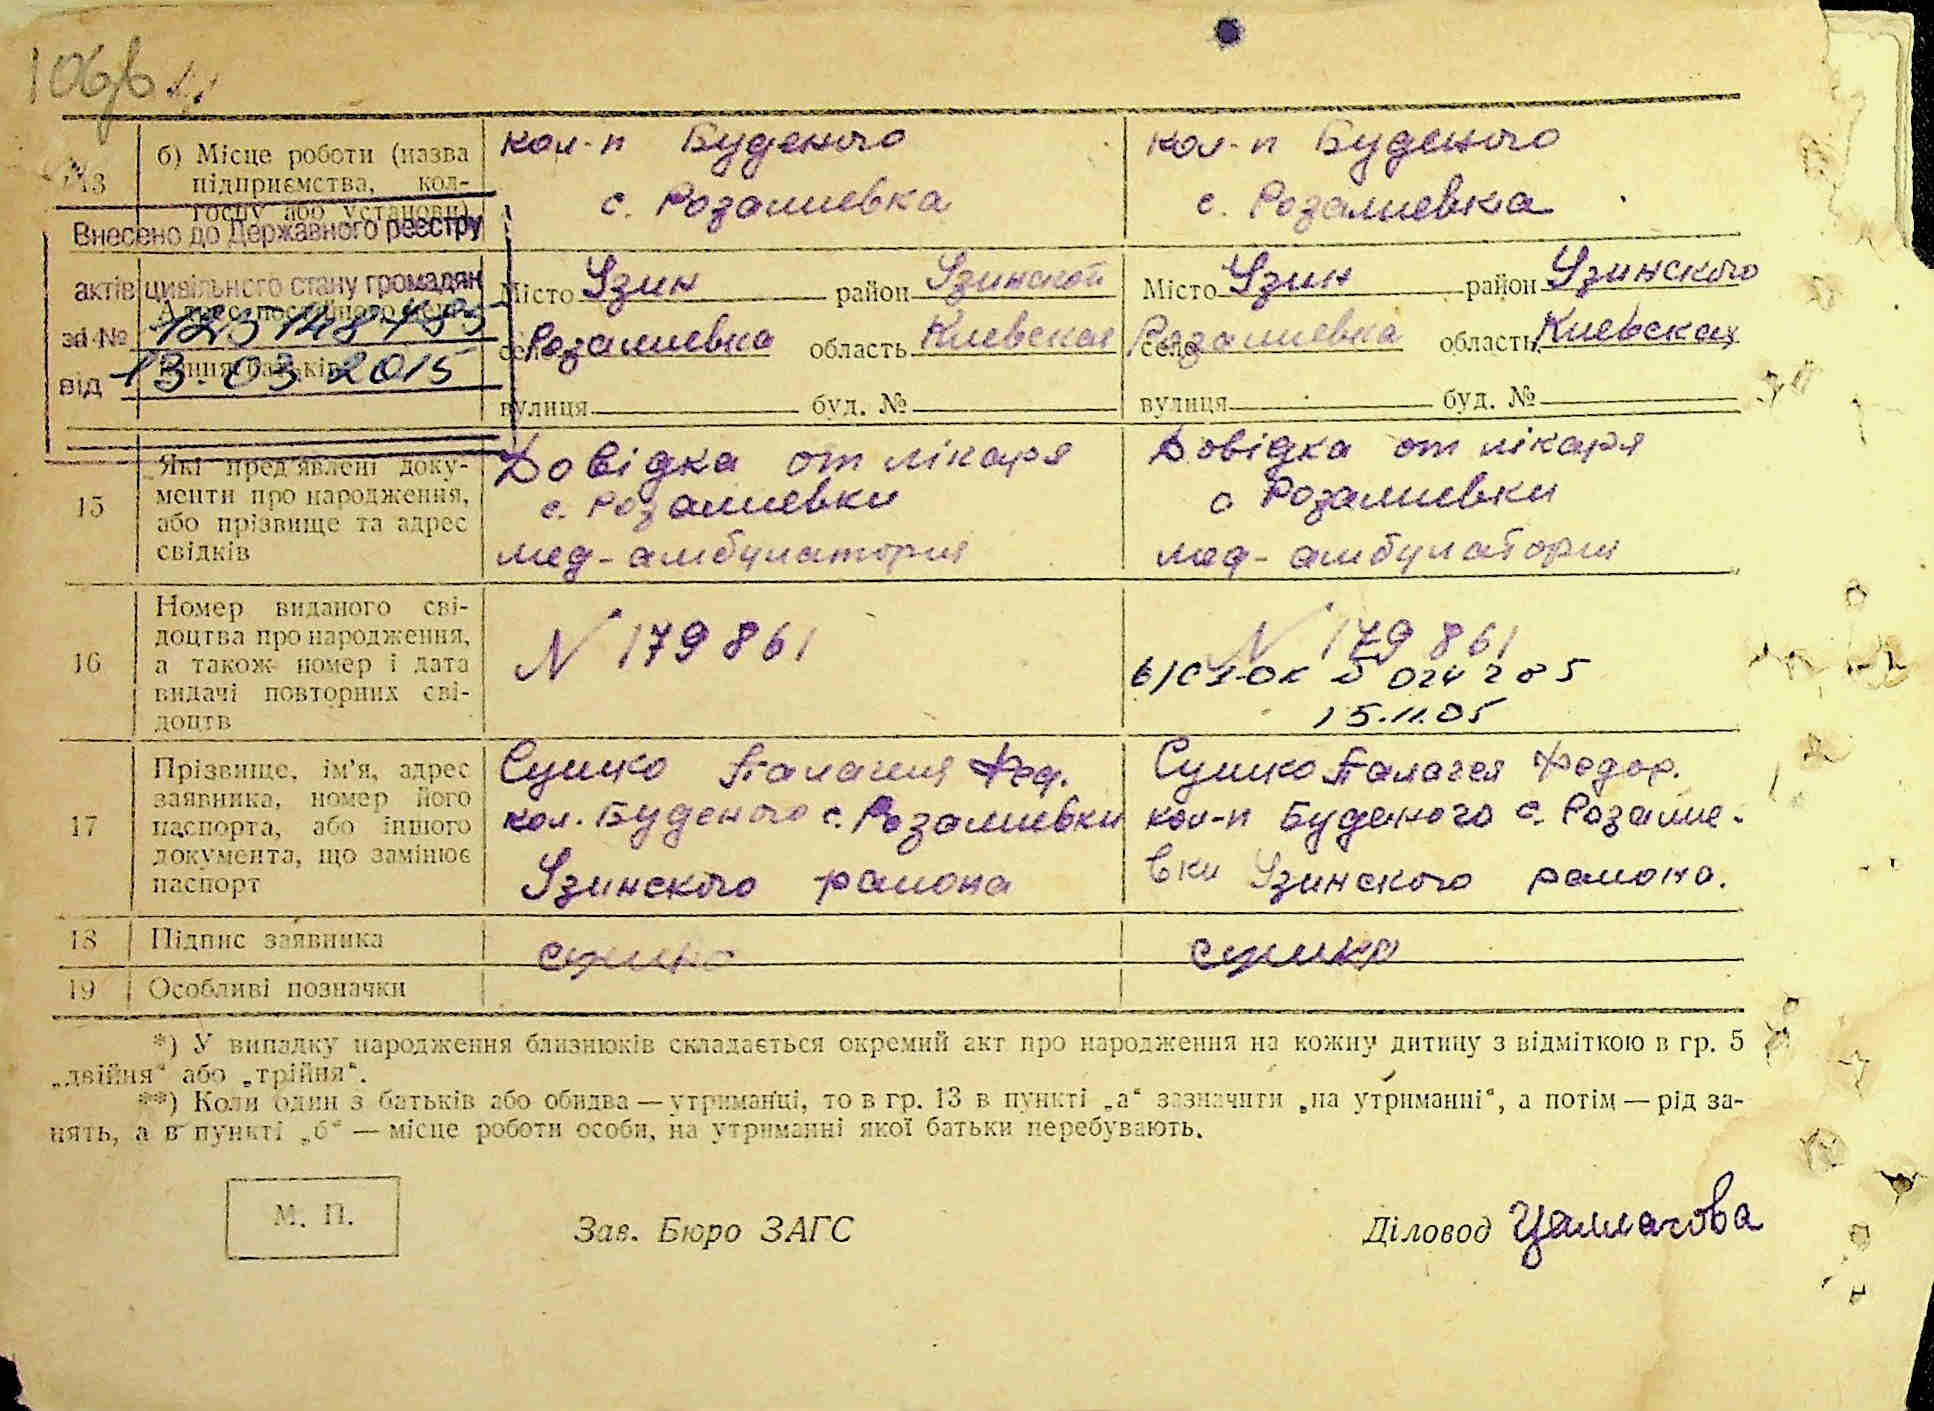 106/б
13
б) Місце роботи (назва
підприємства, кол-
госпу або установи)
кол-п Буденого
с. Розалиевка
кол-п Буденого
с. Розалиевка
Внесено до Державного реєстру
актів цивільного стану громадян
за №
від 13.03.2015
Місто Узин район Узинской
село Розалиевка область Киевская
вулиця буд. №
Місто Узин район Узинского
село Розалиевка область Киевская
вулиця буд. №
15
Які пред'явлені доку-
менти про народження,
або прізвище та адрес
свідків
Довідка от лікаря
с. Розалиевки
мед-амбулатория
Довідка от лікаря
с Розалиевки
мед-амбулатория
16
Номер виданого сві-
доцтва про народження,
а також номер і дата
видачі повторних сві-
доцтв
N 179861
N 179861
024285
15.11.05
17
Прізвище, ім'я, адрес
заявника, номер його
паспорта, або іншого
документа, що замінює
паспорт
Сушко Палагия Фед.
кол. Буденого с. Розалиевки
Узинского района
Сушко Палагея Федор.
кол-п Буденого с. Розалие-
вки Узинского района.
18
Підпис заявника
сушко
сушко
19
Особливі позначки
*) У випадку народження близнюків складається окремий акт про народження на кожну дитину з відміткою в гр. 5
„двійня“ або „трійня“.
**) Коли один з батьків або обидва — утриманці, то в гр. 13 в пункті „а“ зазначити „на утриманні“, а потім — рід за-
нять, а в пункті „б“ — місце роботи особи, на утриманні якої батьки перебувають.
М. П.
Зав. Бюро ЗАГС
Діловод